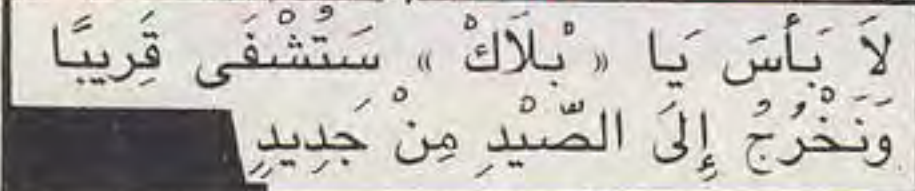 لَا بَأْسَ يَا « بْلَاكْ » سَتُشْفَى قَرِيبًا
وَنَخْرُجُ إِلَى الصَّيْدِ مِنْ جَدِيدٍ